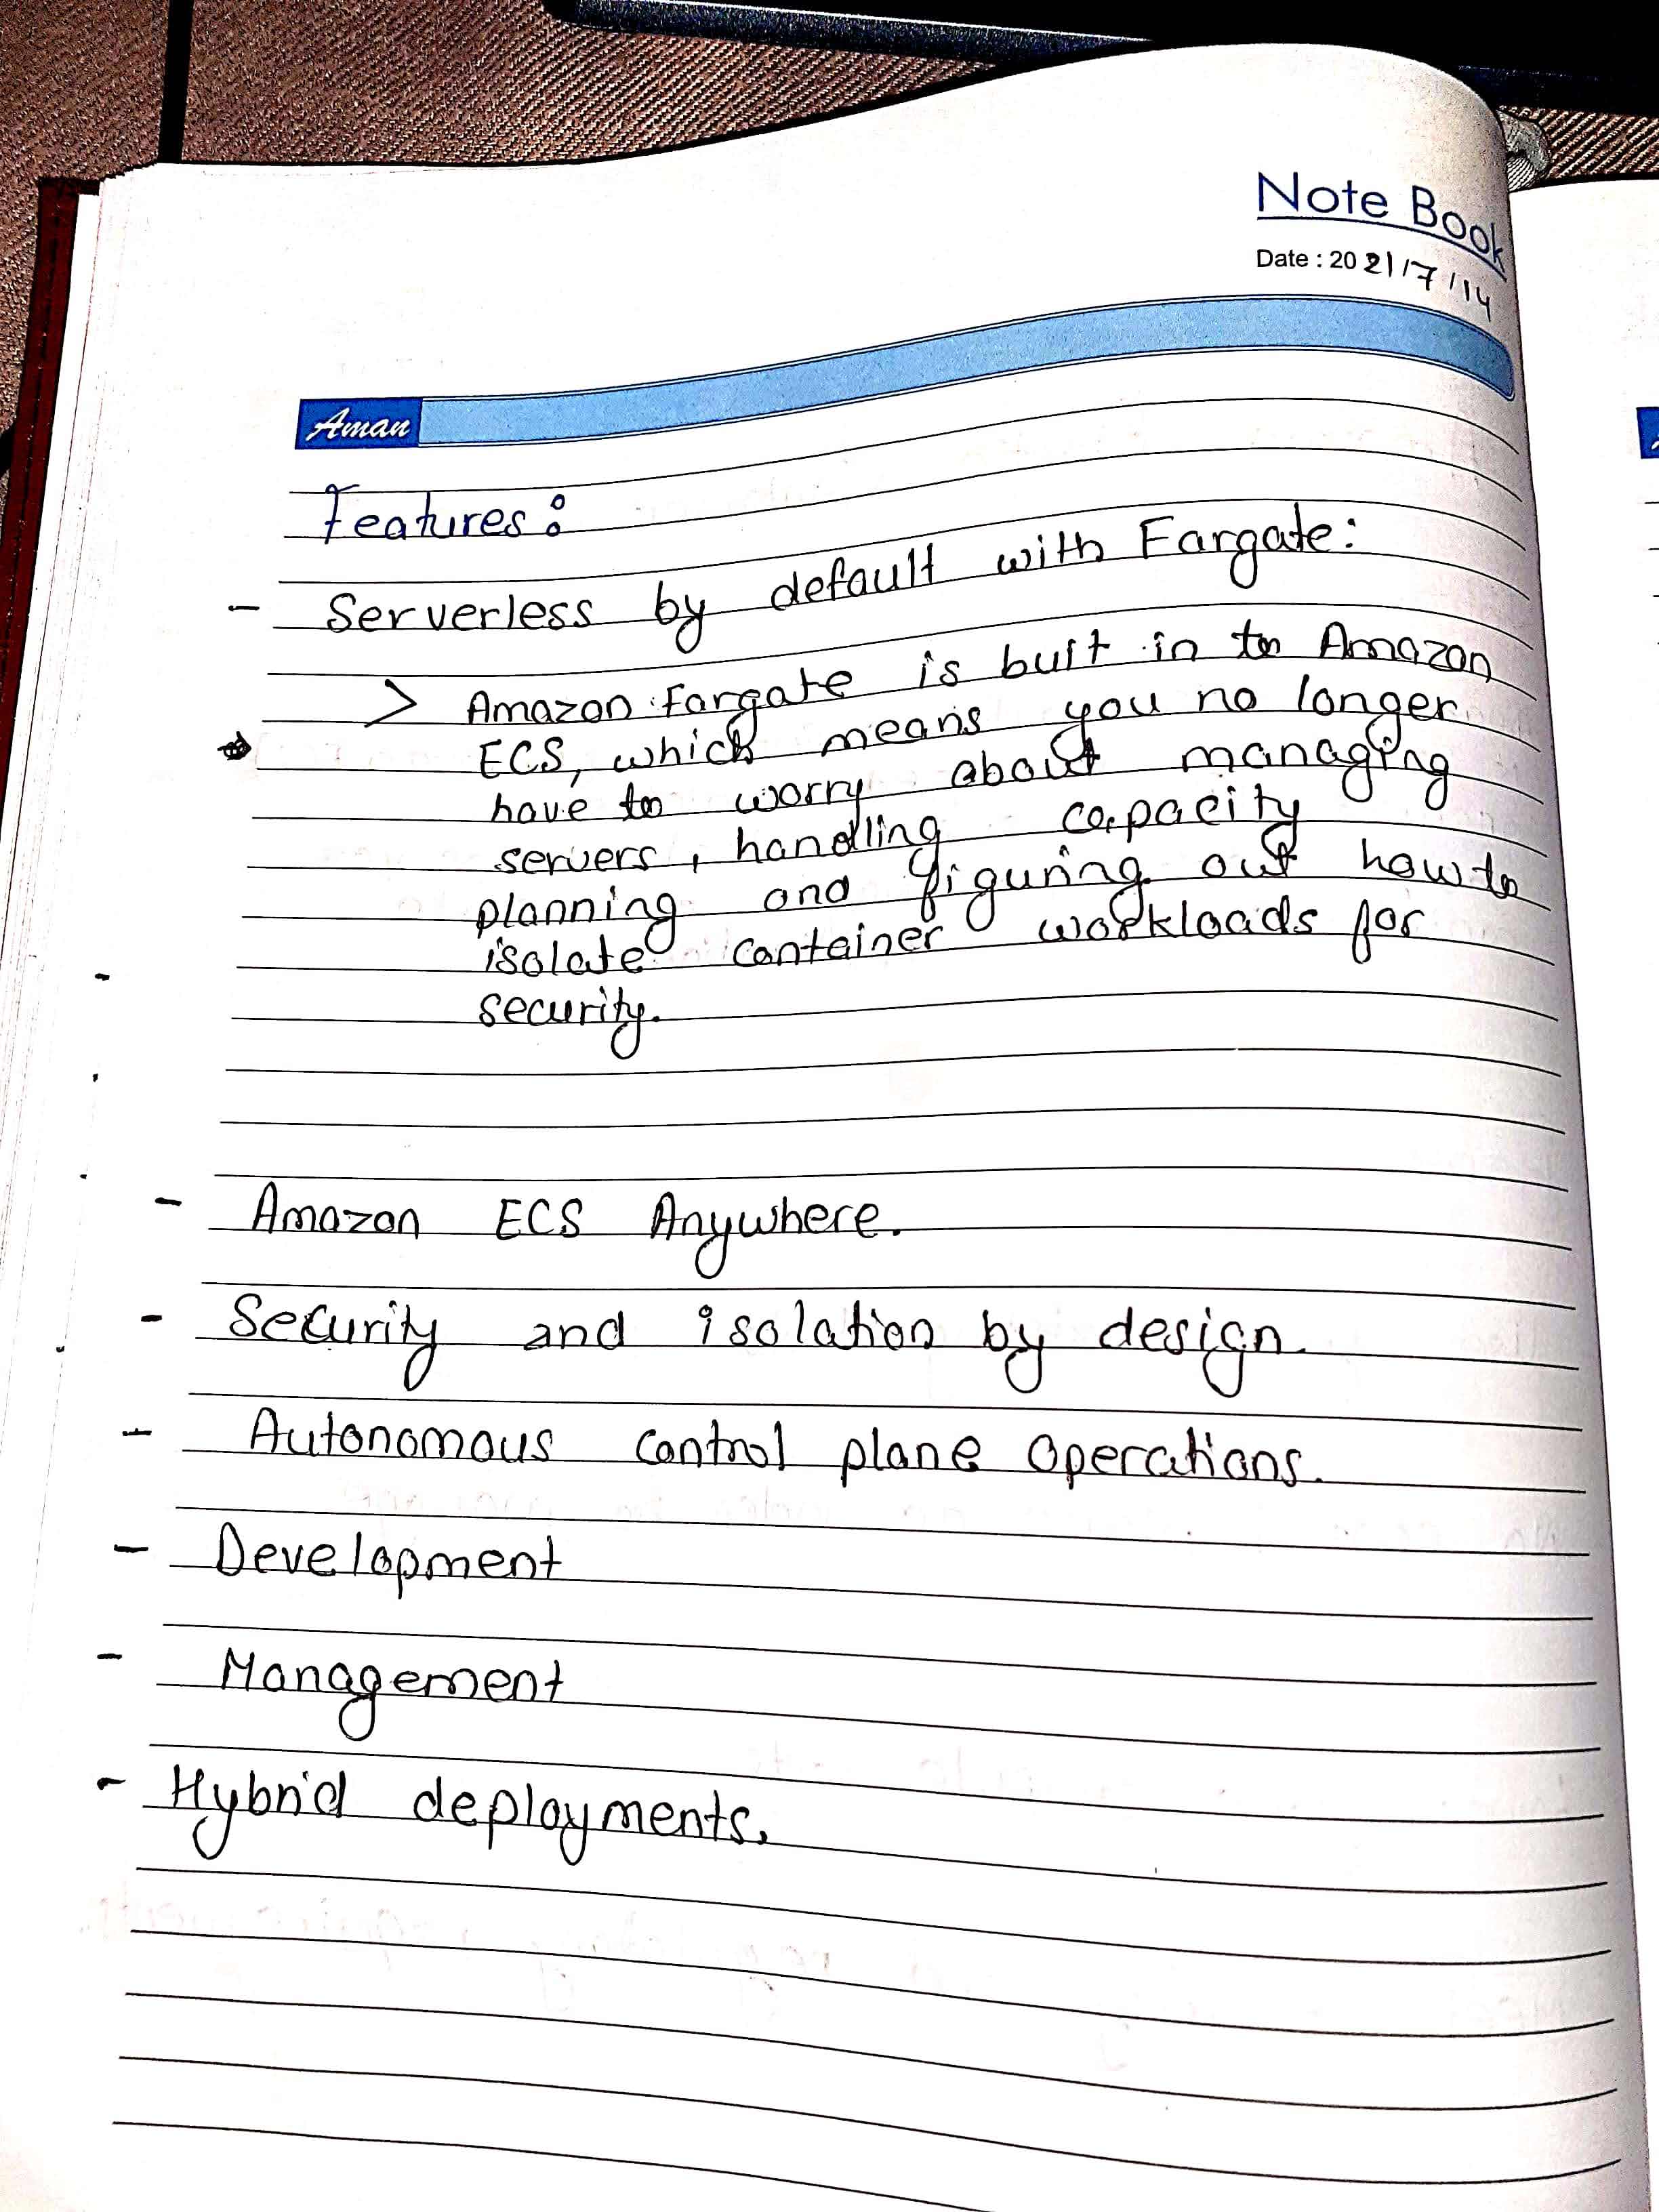 Note Book
Date : 2021/7/14
Aman
Features:
- Serverless by default with Fargate:
> Amazon Fargate is buit in to Amazon
ECS, which means you no longer
have to worry about managing
servers, handling capacity
planning and figuring out how to
isolate container workloads for
security.
- Amazon ECS Anywhere.
- Security and isolation by design.
- Autonomous control plane operations.
- Development
- Management
- Hybrid deployments.